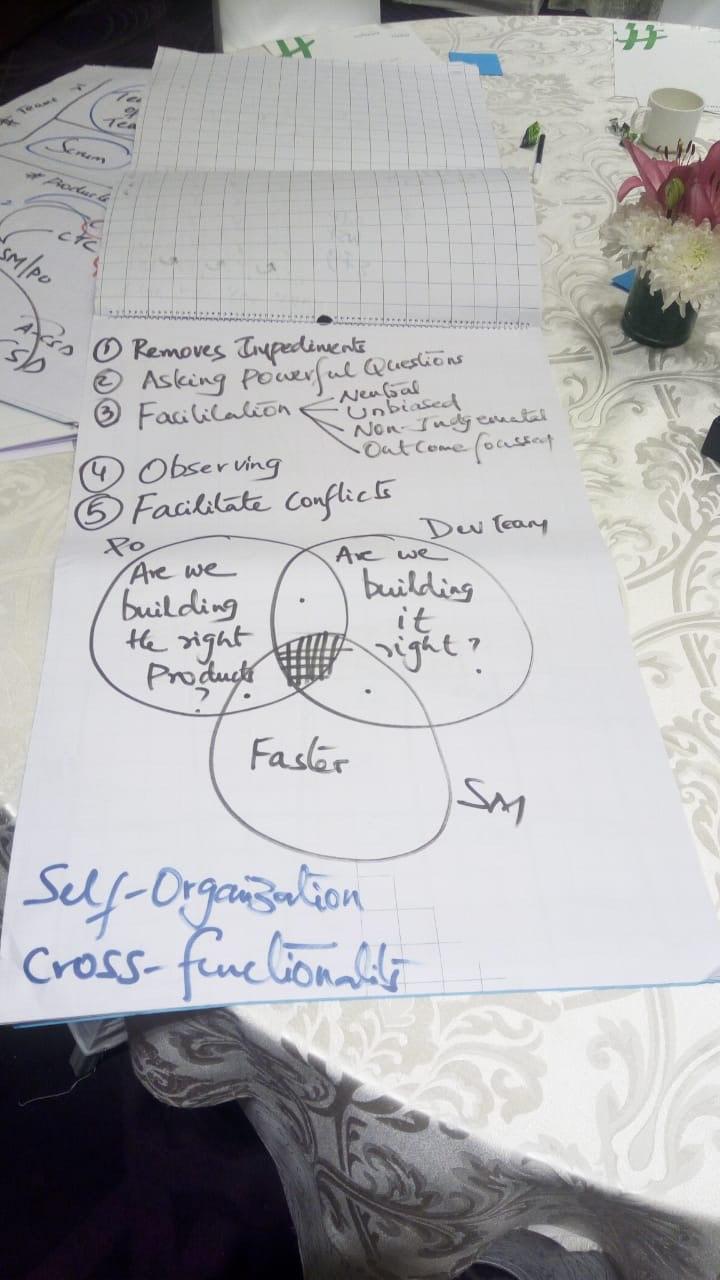 # Teams
Team
of
Tea
Scrum
# Products
CTC
SM/PO
A-CSD
CSD
① Removes Impediments
② Asking Powerful Questions
③ Facilitation
Neutral
Unbiased
Non-Judgemental
Outcome focussed
④ Observing
⑤ Facilitate Conflicts
PO
Dev Team
Are we
building
the right
Product
?
Are we
building
it
right?
Faster
SM
Self-Organization
Cross-functionality